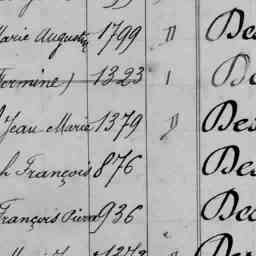 Marie Augustin 1799 " Des
Fermine) 1323 1 De
Jean Marie 1379 " Des
h François 876 Des
François Pierre 936 Des